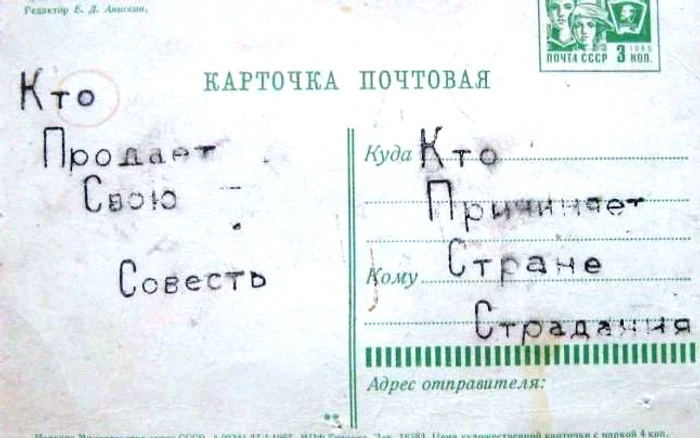 Редактор Е. Д. Анискин.
1966
ПОЧТА СССР 3 КОП.
КАРТОЧКА ПОЧТОВАЯ
Кто
Продает
Свою
Совесть
Куда Кто
Причиняет
Кому Стране
Страдания
Адрес отправителя:
Цена художественной карточки с маркой 4 коп.